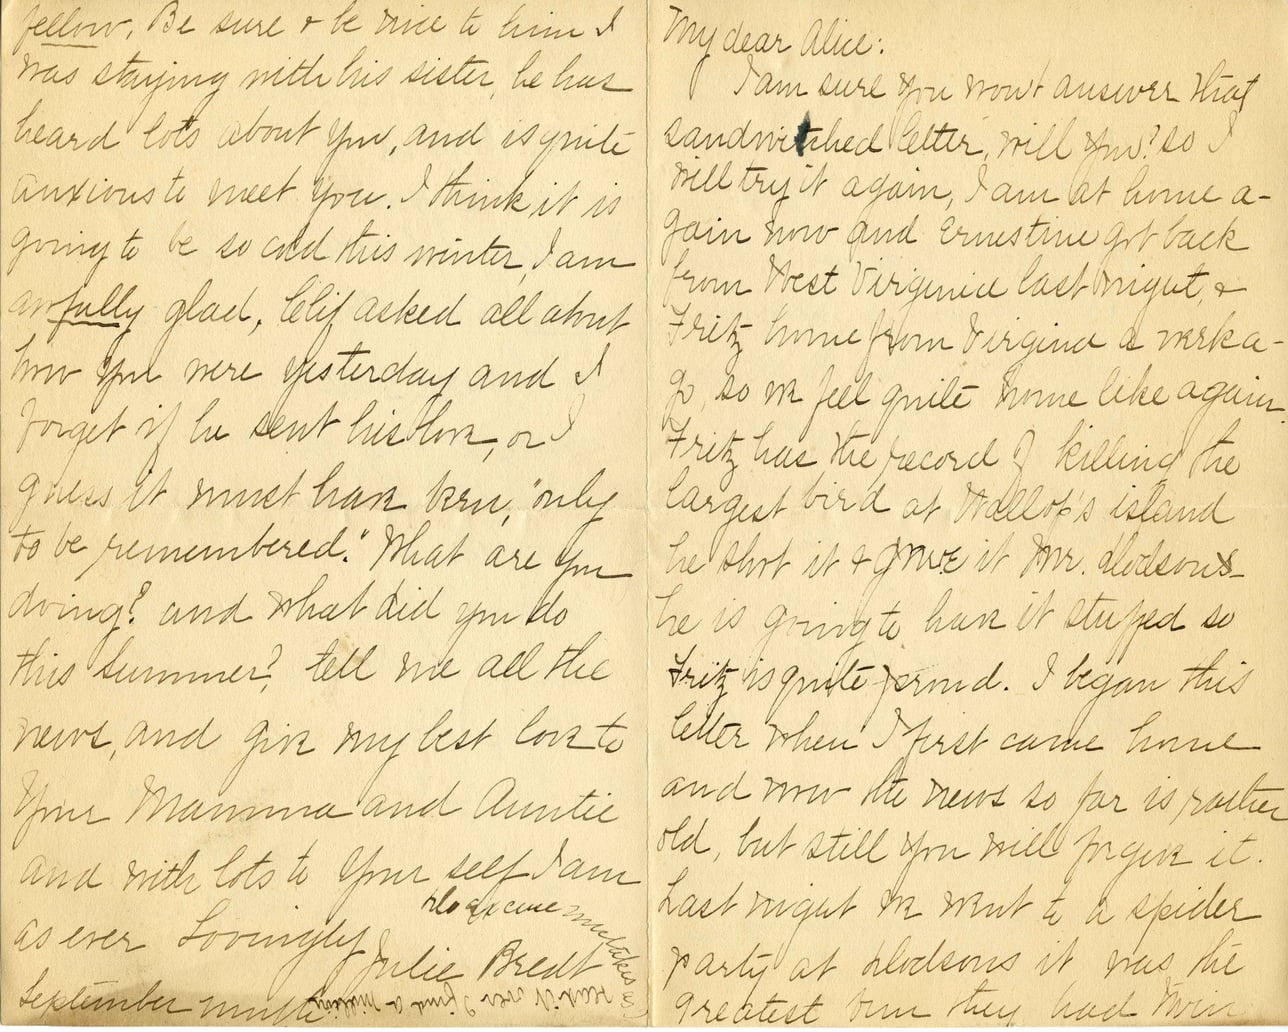 My dear Alice:
I am sure you wont answer that
sandwitched letter, will you? so I
will try it again, I am at home a-
gain now and Ernestine got back
from West Virginia last night, &
Fritz home from Virgina a week a-
go, so we feel quite home like again.
Fritz has the record of killing the
largest bird at Wallop's island
he shot it & gave it Mr. Dodson
he is going to have it stuffed so
Fritz is quite proud. I began this
letter when I first came home
and now the news so far is rather
old, but still you will forgive it.
Last night we went to a spider
party at Dodsons it was the
greatest fun they had twin
fellow. Be sure & be nice to him I
was staying with his sister, he has
heard lots about you, and is quite
anxious to meet you. I think it is
going to be so cold this winter, I am
awfully glad, Clif asked all about
how you were yesterday and I
forget if he sent his love, or I
guess it must have been, "only
to be remembered." What are you
doing? and what did you do
this summer? tell me all the
news, and give my best love to
Your Mamma and Auntie
and with lots to Your self I am
as ever Lovingly
Julie Bredt
September ninth
excuse mistakes as
read it over I find a million